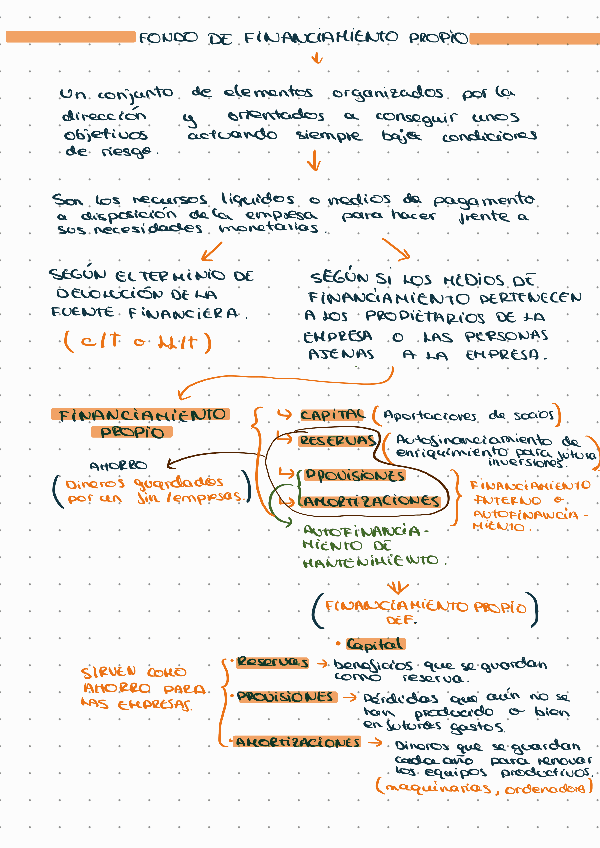 FONDO DE FINANCIAMIENTO PROPIO
Un conjunto de elementos organizados por la
dirección y orientados a conseguir unos
objetivos actuando siempre bajo condiciones
de riesgo.
Son los recursos líquidos o medios de pagamento
a disposición de la empresa para hacer frente a
sus necesidades monetarias.
SEGÚN EL TERMINIO DE
DEVOLUCIÓN DE LA
FUENTE FINANCIERA.
(c/T o ll/t)
SEGÚN SI LOS MEDIOS DE
FINANCIAMIENTO PERTENECEN
A LOS PROPIETARIOS DE LA
EMPRESA O LAS PERSONAS
AJENAS A LA EMPRESA.
FINANCIAMIENTO
PROPIO
AHORRO
(Dineros guardados
por un fin/empresas)
CAPITAL (Aportaciones de socios)
RESERVAS (Autofinanciamiento de
enriquimiento para futura
inversiones.)
PROVISIONES
AMORTIZACIONES
FINANCIAMIENTO
INTERNO o
AUTOFINANCIA-
MIENTO.
AUTOFINANCIA-
MIENTO DE
MANTENIMIENTO.
(FINANCIAMIENTO PROPIO
DEF.)
• Capital
SIRVEN COMO
AHORRO PARA
LAS EMPRESAS.
• Reservas → beneficios que se guardan
como reserva.
• PROVISIONES → Pérdidas que aún no se
han producido o bien
en futuros gastos.
• AMORTIZACIONES → Dineros que se guardan
cada año para renovar
los equipos productivos.
(maquinarias, ordenadors)